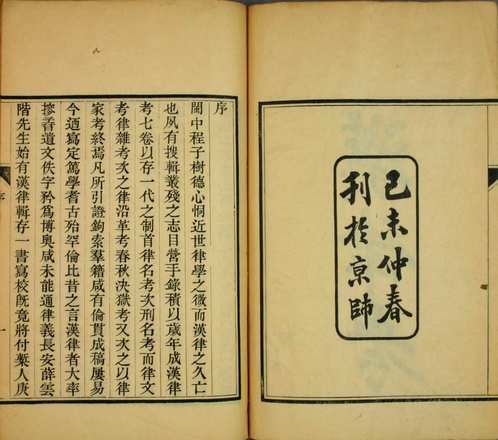 己未仲春
刊於京師
序
閩中程子樹德心恫近世律學之微而漢律之久亡
也夙有搜輯叢殘之志目營手錄積以歲年成漢律
考七卷以存一代之制首律名考次刑名考而律文
考律雜考次之律沿革考春秋決獄考又次之以律
家考終焉凡所引證鉤索羣籍咸有倫貫成稿屢易
今迺寫定篤學耆古殆罕倫比昔之言漢律者大率
摻香遺文佚字矜爲博奥咸未能通律義長安薛雲
階先生始有漢律輯存一書寫校旣竟將付棗人庚
序
一